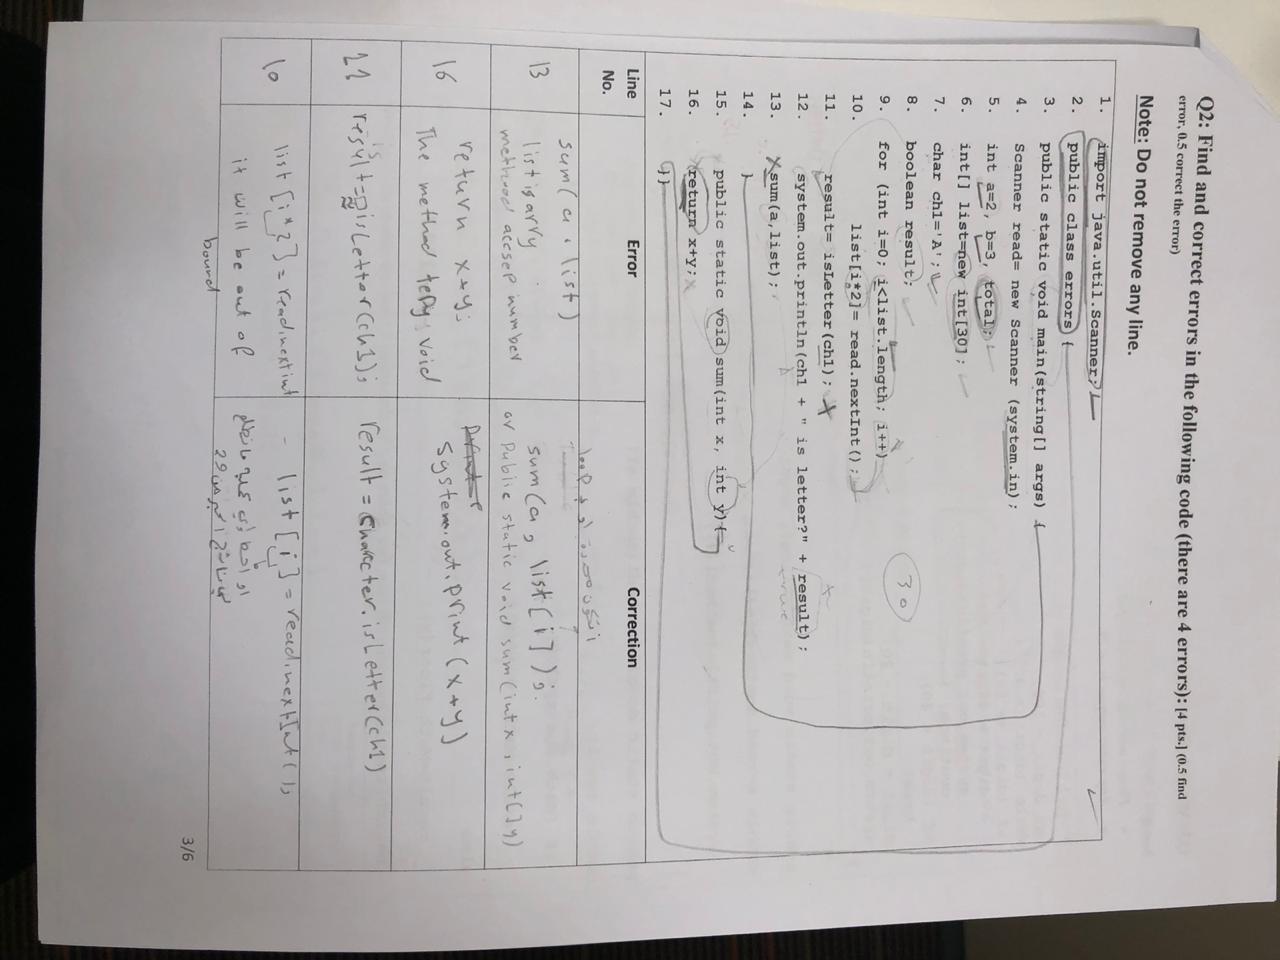 Q2: Find and correct errors in the following code (there are 4 errors): [4 pts.] (0.5 find
error, 0.5 correct the error)
Note: Do not remove any line.
1. import java.util.Scanner;
2. public class errors {
3. public static void main(string[] args) {
4. Scanner read= new Scanner (system.in);
5. int a=2, b=3, total;
6. int[] list=new int[30];
7. char ch1='A';
8. boolean result;
9. for (int i=0; i<list.length; i++)
10. list[i*2]= read.nextInt();
11. result= isLetter(ch1);
12. system.out.println(ch1 + " is letter?" + result);
13. sum(a,list);
14. }
15. public static void sum(int x, int y){
16. return x+y;
17. }}
30
true
Line No. Error Correction
13
sum(a, list)
list is arry
method accsep number
sum(a, list[i]);
or Public static void sum(int x, int[] y)
16
return x+y;
The method tepy void
System.out.print(x+y)
11
result = isLetter(ch1);
result = Character.isLetter(ch1)
10
list[i*2] = read.nextInt
it will be out of
bound
- list[i] = read.nextInt();
29
3/6